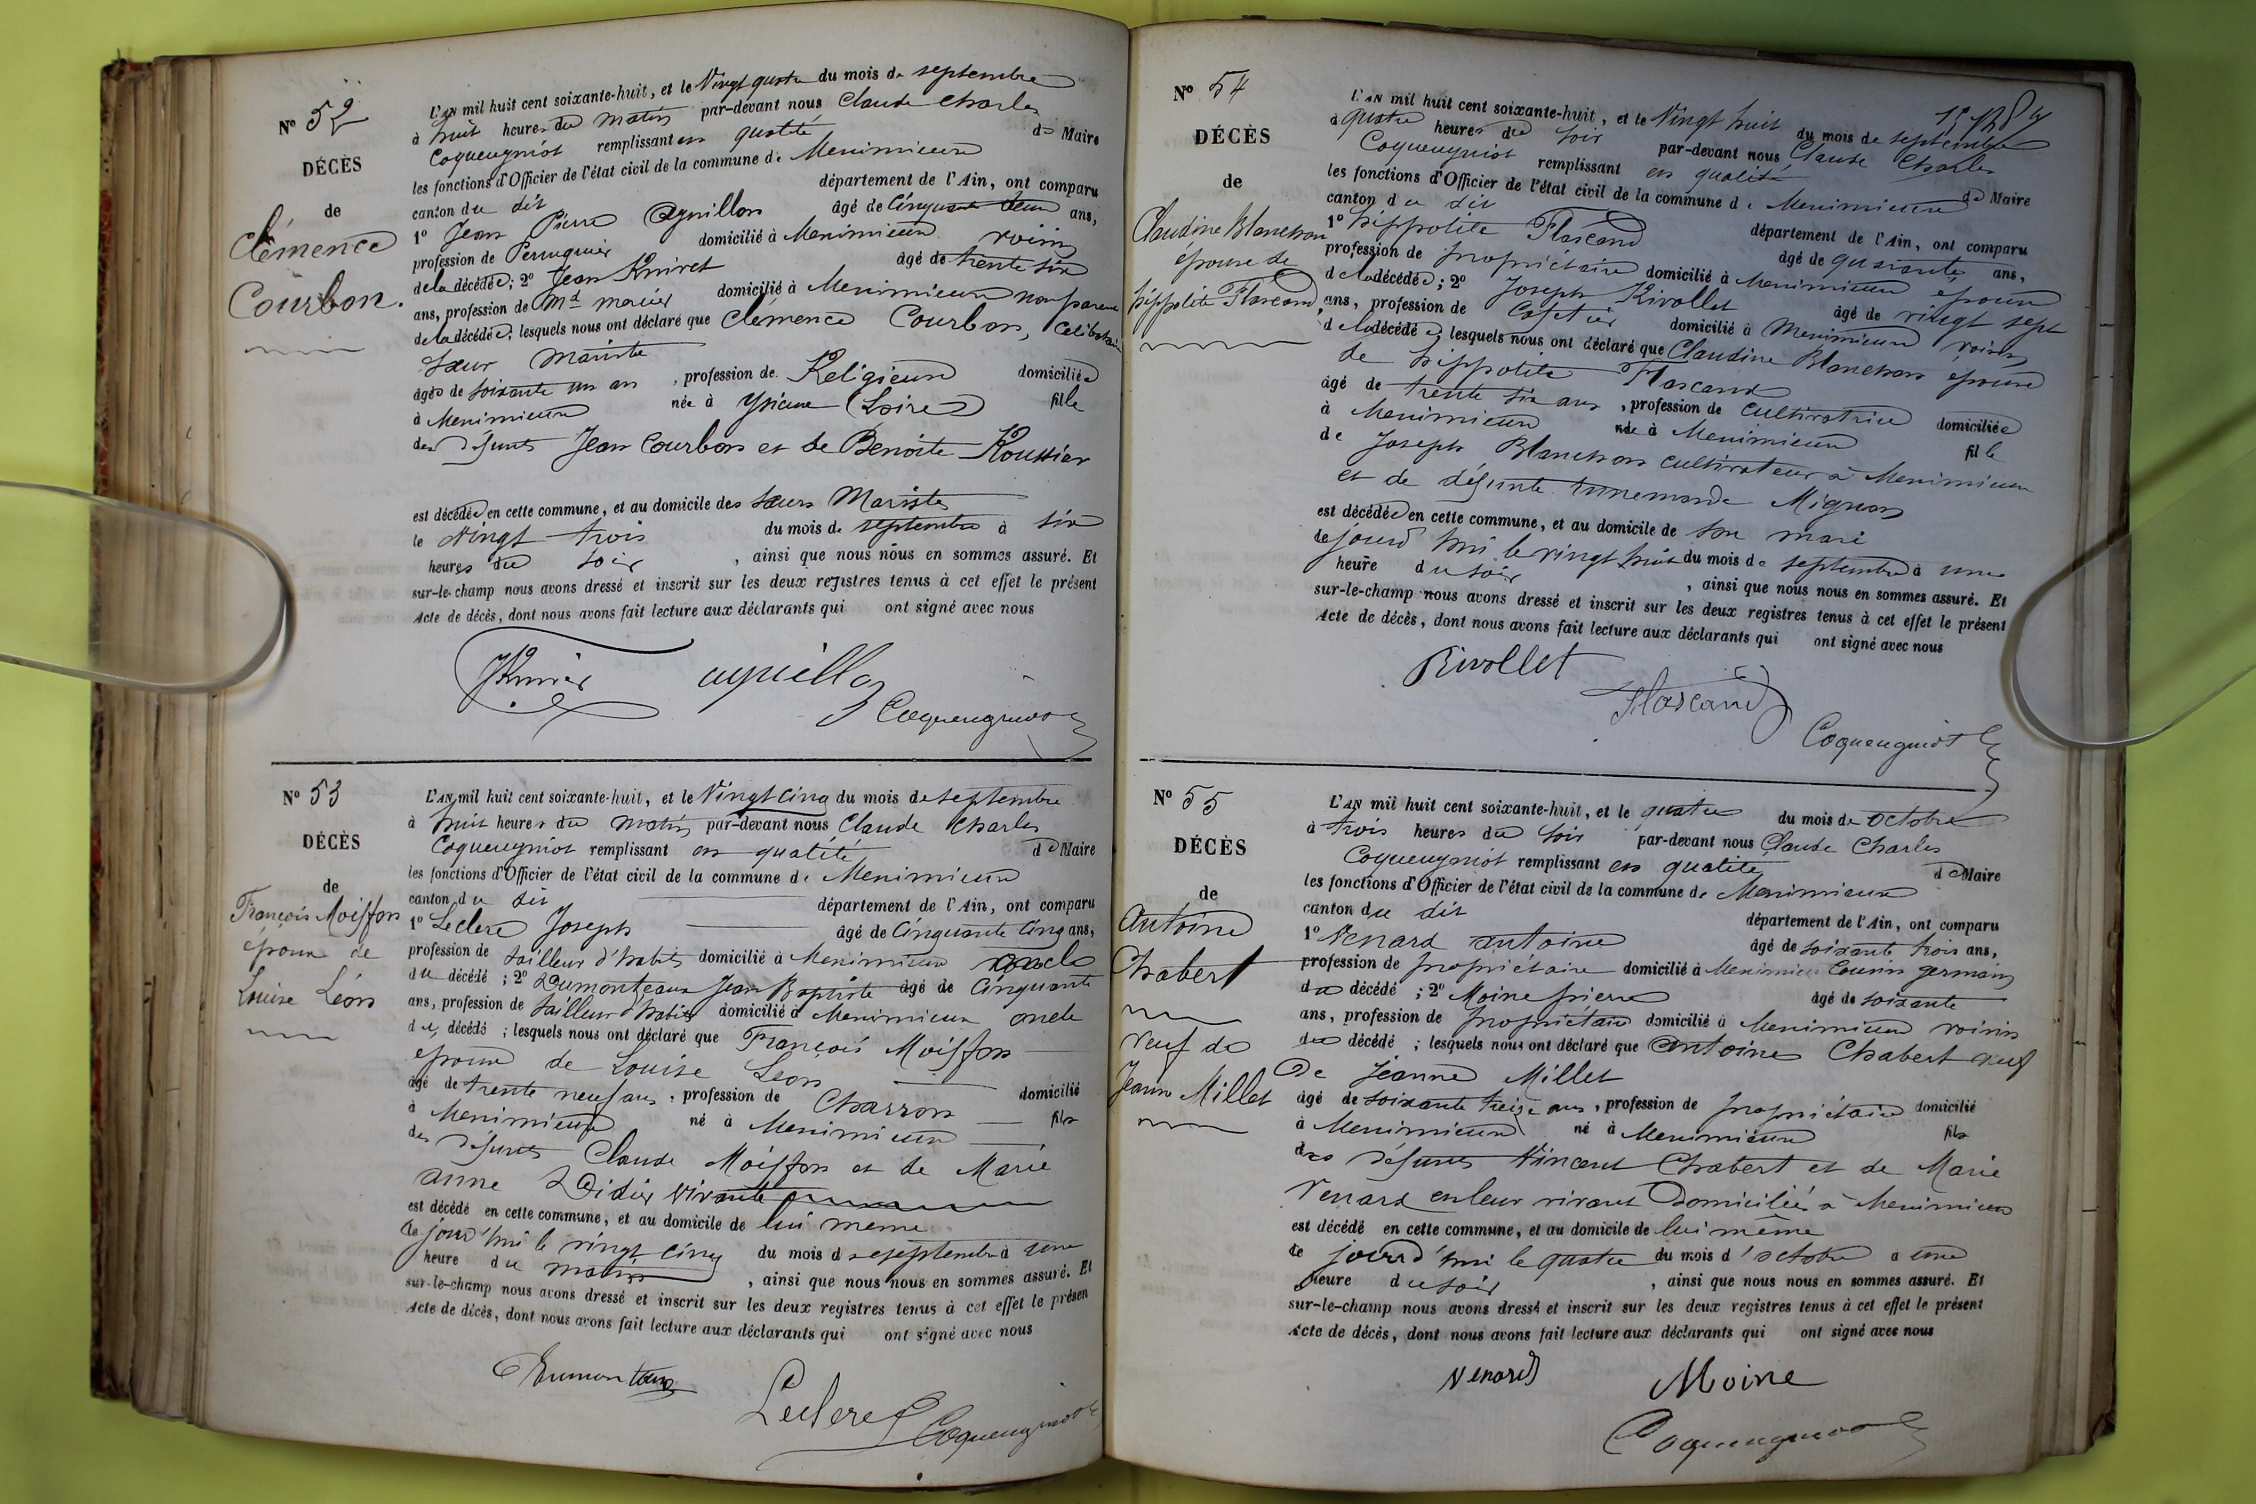 N° 52
DÉCÈS
de
Clémence
Courbon.
L'AN mil huit cent soixante-huit, et le Vingt quatre du mois de septembre
à huit heures du matin par-devant nous Claude Charles
Coqueugniot remplissant en qualité de Maire
les fonctions d'Officier de l'état civil de la commune de Meximieux
canton du dit département de l'Ain, ont comparu
1° Jean Pierre Aguillon âgé de Cinquante deux ans,
profession de Perruquier domicilié à Meximieux voisin
de la décédée; 2° Jean âgé de trente six
ans, profession de Md mercier domicilié à Meximieux non parent
de la décédée; lesquels nous ont déclaré que Clémence Courbon, Célibataire
Sœur Mariste
âgée de soixante un an, profession de Religieuse domiciliée
à Meximieux née à (Loire) fille
des défunts Jean Courbon et de Benoite Roussier
est décédée en cette commune, et au domicile des sœurs Maristes
le Vingt trois du mois de septembre à six
heures du soir, ainsi que nous nous en sommes assuré. Et
sur-le-champ nous avons dressé et inscrit sur les deux registres tenus à cet effet le présent
Acte de décès, dont nous avons fait lecture aux déclarants qui ont signé avec nous
aguillon
Coqueugniot
N° 53
DÉCÈS
de
François Moiffon
époux de
Louise Léon
L'AN mil huit cent soixante-huit, et le Vingt cinq du mois de septembre
à huit heures du matin par-devant nous Claude Charles
Coqueugniot remplissant en qualité de Maire
les fonctions d'Officier de l'état civil de la commune de Meximieux
canton du dit département de l'Ain, ont comparu
1° Leclere Joseph âgé de Cinquante cinq ans,
profession de tailleur d'habits domicilié à Meximieux oncle
du décédé; 2° Dumonteaux Jean Baptiste âgé de Cinquante
ans, profession de tailleur d'habits domicilié à Meximieux oncle
du décédé; lesquels nous ont déclaré que François Moiffon
époux de Louise Léon
âgé de trente neuf ans, profession de Charron domicilié
à Meximieux né à Meximieux fils
des défunts Claude Moiffon et de Marie
anne Didier vivante
est décédé en cette commune, et au domicile de lui même
le jourd'hui le vingt cinq du mois de septembre à une
heure du matin, ainsi que nous nous en sommes assuré. Et
sur-le-champ nous avons dressé et inscrit sur les deux registres tenus à cet effet le présen
Acte de décès, dont nous avons fait lecture aux déclarants qui ont signé avec nous
Dumonteaux
Leclere
Coqueugniot
N° 54
DÉCÈS
de
Claudine Blanchon
épouse de
hippolite Flascand
L'AN mil huit cent soixante-huit, et le Vingt huit du mois de septembre
à quatre heures du soir par-devant nous Claude Charles
Coqueugniot remplissant en qualité de Maire
les fonctions d'Officier de l'état civil de la commune de Meximieux
canton du dit département de l'Ain, ont comparu
1° hippolite Flascand âgé de quarante ans,
profession de propriétaire domicilié à Meximieux époux
de la décédée; 2° Joseph Rivollet âgé de vingt sept
ans, profession de Cafetier domicilié à Meximieux voisin
de la décédée lesquels nous ont déclaré que Claudine Blanchon épouse
de hippolite Flascand
âgé de trente six ans, profession de cultivatrice domiciliée
à Meximieux née à Meximieux fille
de Joseph Blanchon cultivateur à Meximieux
et de défunte Mignon
est décédée en cette commune, et au domicile de son mari
le jourd'hui le vingt huit du mois de septembre à une
heure du soir, ainsi que nous nous en sommes assuré. Et
sur-le-champ nous avons dressé et inscrit sur les deux registres tenus à cet effet le présent
Acte de décès, dont nous avons fait lecture aux déclarants qui ont signé avec nous
Rivollet
Flascand
Coqueugniot
N° 55
DÉCÈS
de
Antoine
Chabert
veuf de
Jeanne Millet
L'AN mil huit cent soixante-huit, et le quatre du mois de octobre
à trois heures du soir par-devant nous Claude Charles
Coqueugniot remplissant en qualité de Maire
les fonctions d'Officier de l'état civil de la commune de Meximieux
canton du dit département de l'Ain, ont comparu
1° Venard antoine âgé de soixante trois ans,
profession de propriétaire domicilié à Meximieux Cousin germain
du décédé; 2° Moine pierre âgé de soixante
ans, profession de propriétaire domicilié à Meximieux voisin
du décédé; lesquels nous ont déclaré que antoine Chabert veuf
De Jeanne Millet
âgé de soixante treize ans, profession de propriétaire domicilié
à Meximieux né à Meximieux fils
des défunts Vincent Chabert et de Marie
Venard en leur vivant Domiciliés à Meximieux
est décédé en cette commune, et au domicile de lui même
le jourd'hui le quatre du mois d'octobre à une
heure du soir, ainsi que nous nous en sommes assuré. Et
sur-le-champ nous avons dressé et inscrit sur les deux registres tenus à cet effet le présent
Acte de décès, dont nous avons fait lecture aux déclarants qui ont signé avec nous
Venard
Moine
Coqueugniot